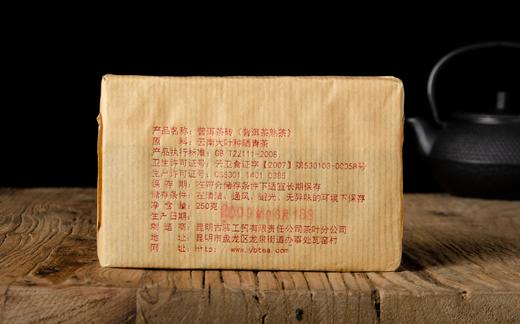 产品名称：普洱茶砖（普洱茶熟茶）
原　　料：云南大叶种晒青茶
产品执行标准：GB T22111-2008
卫生许可证号：云卫食证字【2007】第530103-00058号
生产许可证号：QS5301 1401 0385
保 存 期：在符合储存条件下适宜长期保存
储存条件：在清洁、通风、避光、无异味的环境下保存
净 含 量：250克
生产日期：2009年06月18日
制 造 商：昆明古 工贸有限责任公司茶叶分公司
地　　址：昆明市盘龙区龙泉街道办事处瓦窑村
网　　址：http: www.ybtea.com